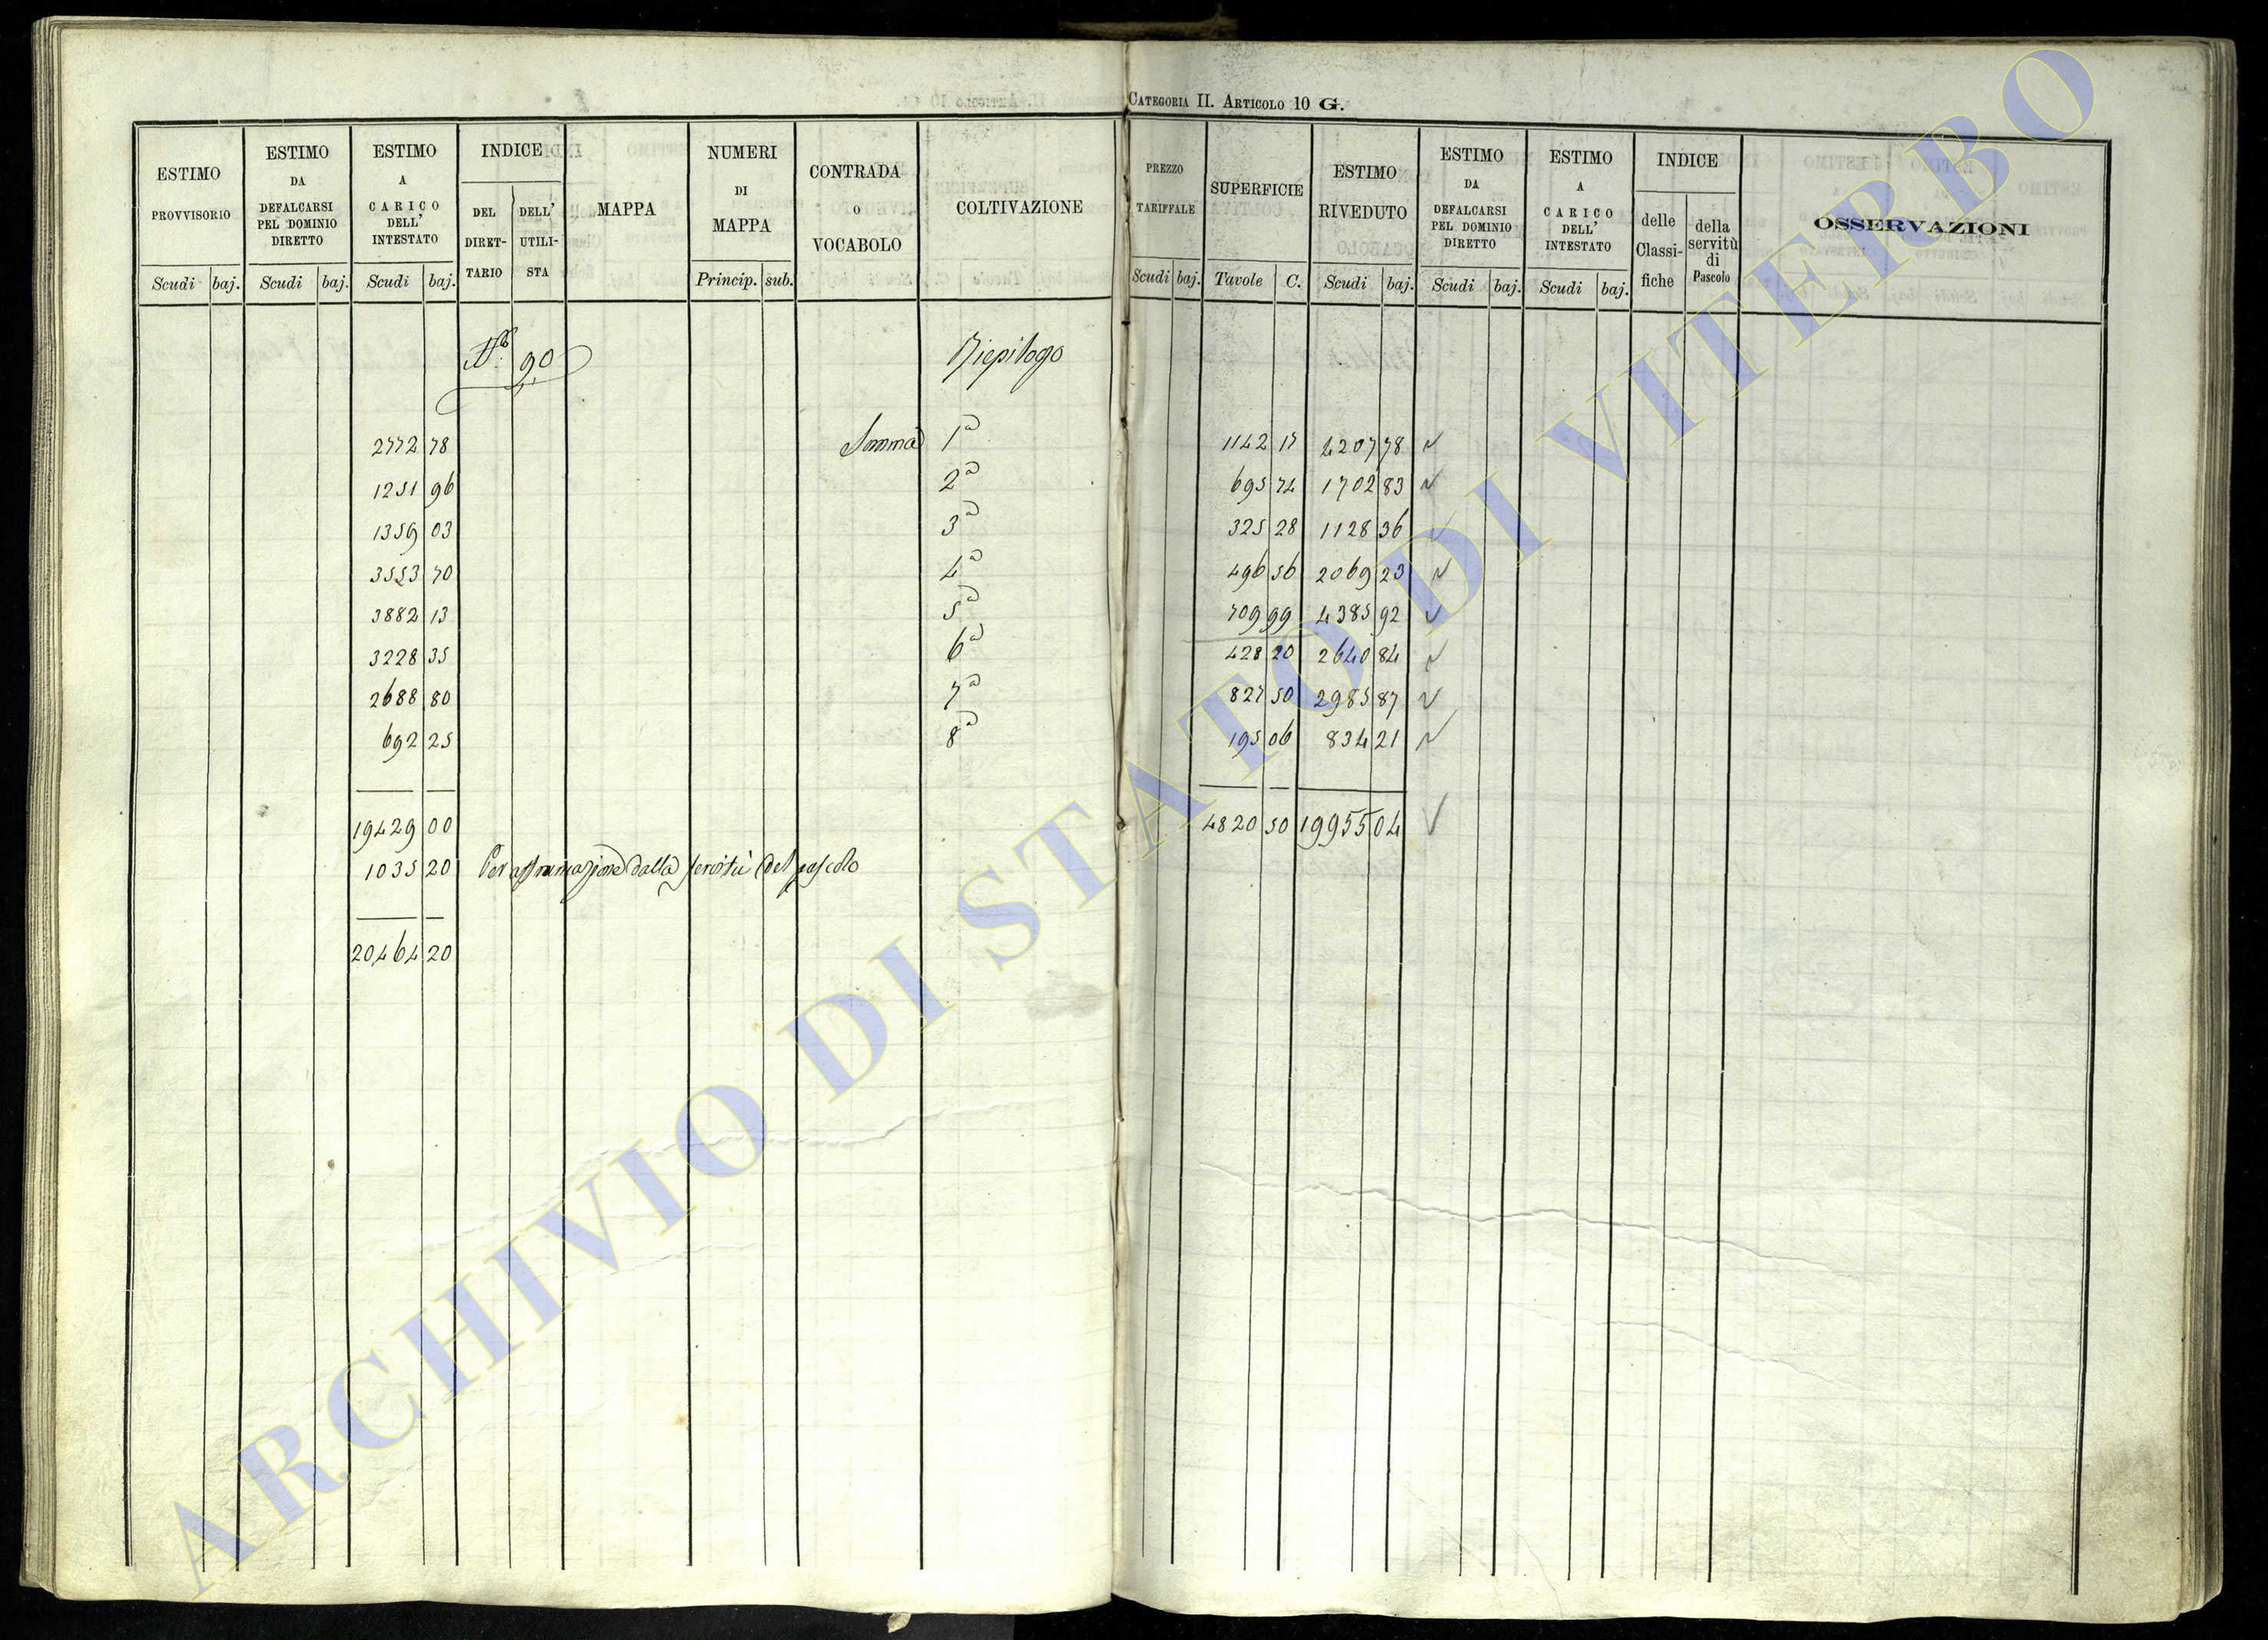 CATEGORIA II. ARTICOLO 10 G.
ESTIMO PROVVISORIO Scudi baj.
ESTIMO DA DEFALCARSI PEL DOMINIO DIRETTO Scudi baj.
ESTIMO A CARICO DELL' INTESTATO Scudi baj.
INDICE DEL DIRET-TARIO DELL' UTILI-STA
MAPPA
NUMERI DI MAPPA Princip. sub.
CONTRADA O VOCABOLO
COLTIVAZIONE
PREZZO TARIFFALE Scudi baj.
SUPERFICIE Tavole C.
ESTIMO RIVEDUTO Scudi baj.
ESTIMO DA DEFALCARSI PEL DOMINIO DIRETTO Scudi baj.
ESTIMO A CARICO DELL' INTESTATO Scudi baj.
INDICE delle Classi-fiche della servitù di Pascolo
OSSERVAZIONI
90 Riepilogo
2772 78 Somma 1a 1142 17 4207 78
1251 96 2a 695 74 1702 83
1359 03 3a 325 28 1128 36
3553 70 4a 496 56 2069 23
3882 13 5a 709 99 4385 92
3228 35 6a 428 20 2640 84
2688 80 7a 827 50 2985 87
692 25 8a 195 06 834 21
19429 00 4820 50 19955 04
1035 20 Per affrancazione dalla servitù del pascolo
20464 20
ARCHIVIO DI STATO DI VITERBO